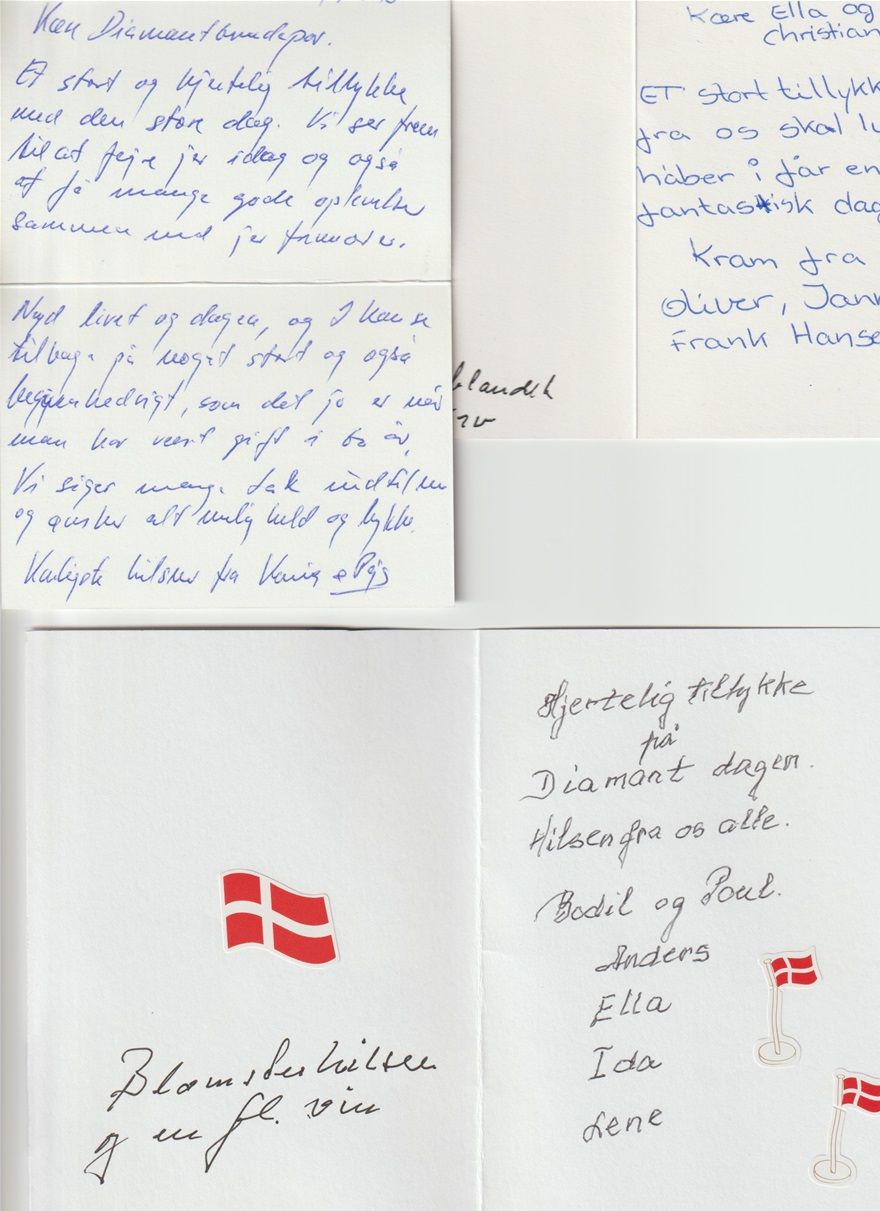 Kære Diamantbrudepar.
Et stort og hjertelig tillykke
med den store dag. Vi ser frem
til at fejre jer idag og også
at få mange gode oplevelser
sammen med jer fremover.
Nyd livet og dagen, og I kan se
tilbage på noget stort og også
begivenhedsrigt, som det jo er når
man har været gift i 60 år.
Vi siger mange tak indtil nu
og ønsker alt mulig held og lykke.
Kærligste hilsner fra
Kære Ella og
Christian
ET stort tillykk
fra os skal
håber i får en
fantastisk dag
Kram fra
Oliver, Jann
Frank Hanse
blandet
Hjertelig tillykke
på
Diamant dagen.
Hilsen fra os alle.
Bodil og Poul.
Anders
Ella
Ida
Lene
Blomsterhilsen
og en fl. vin